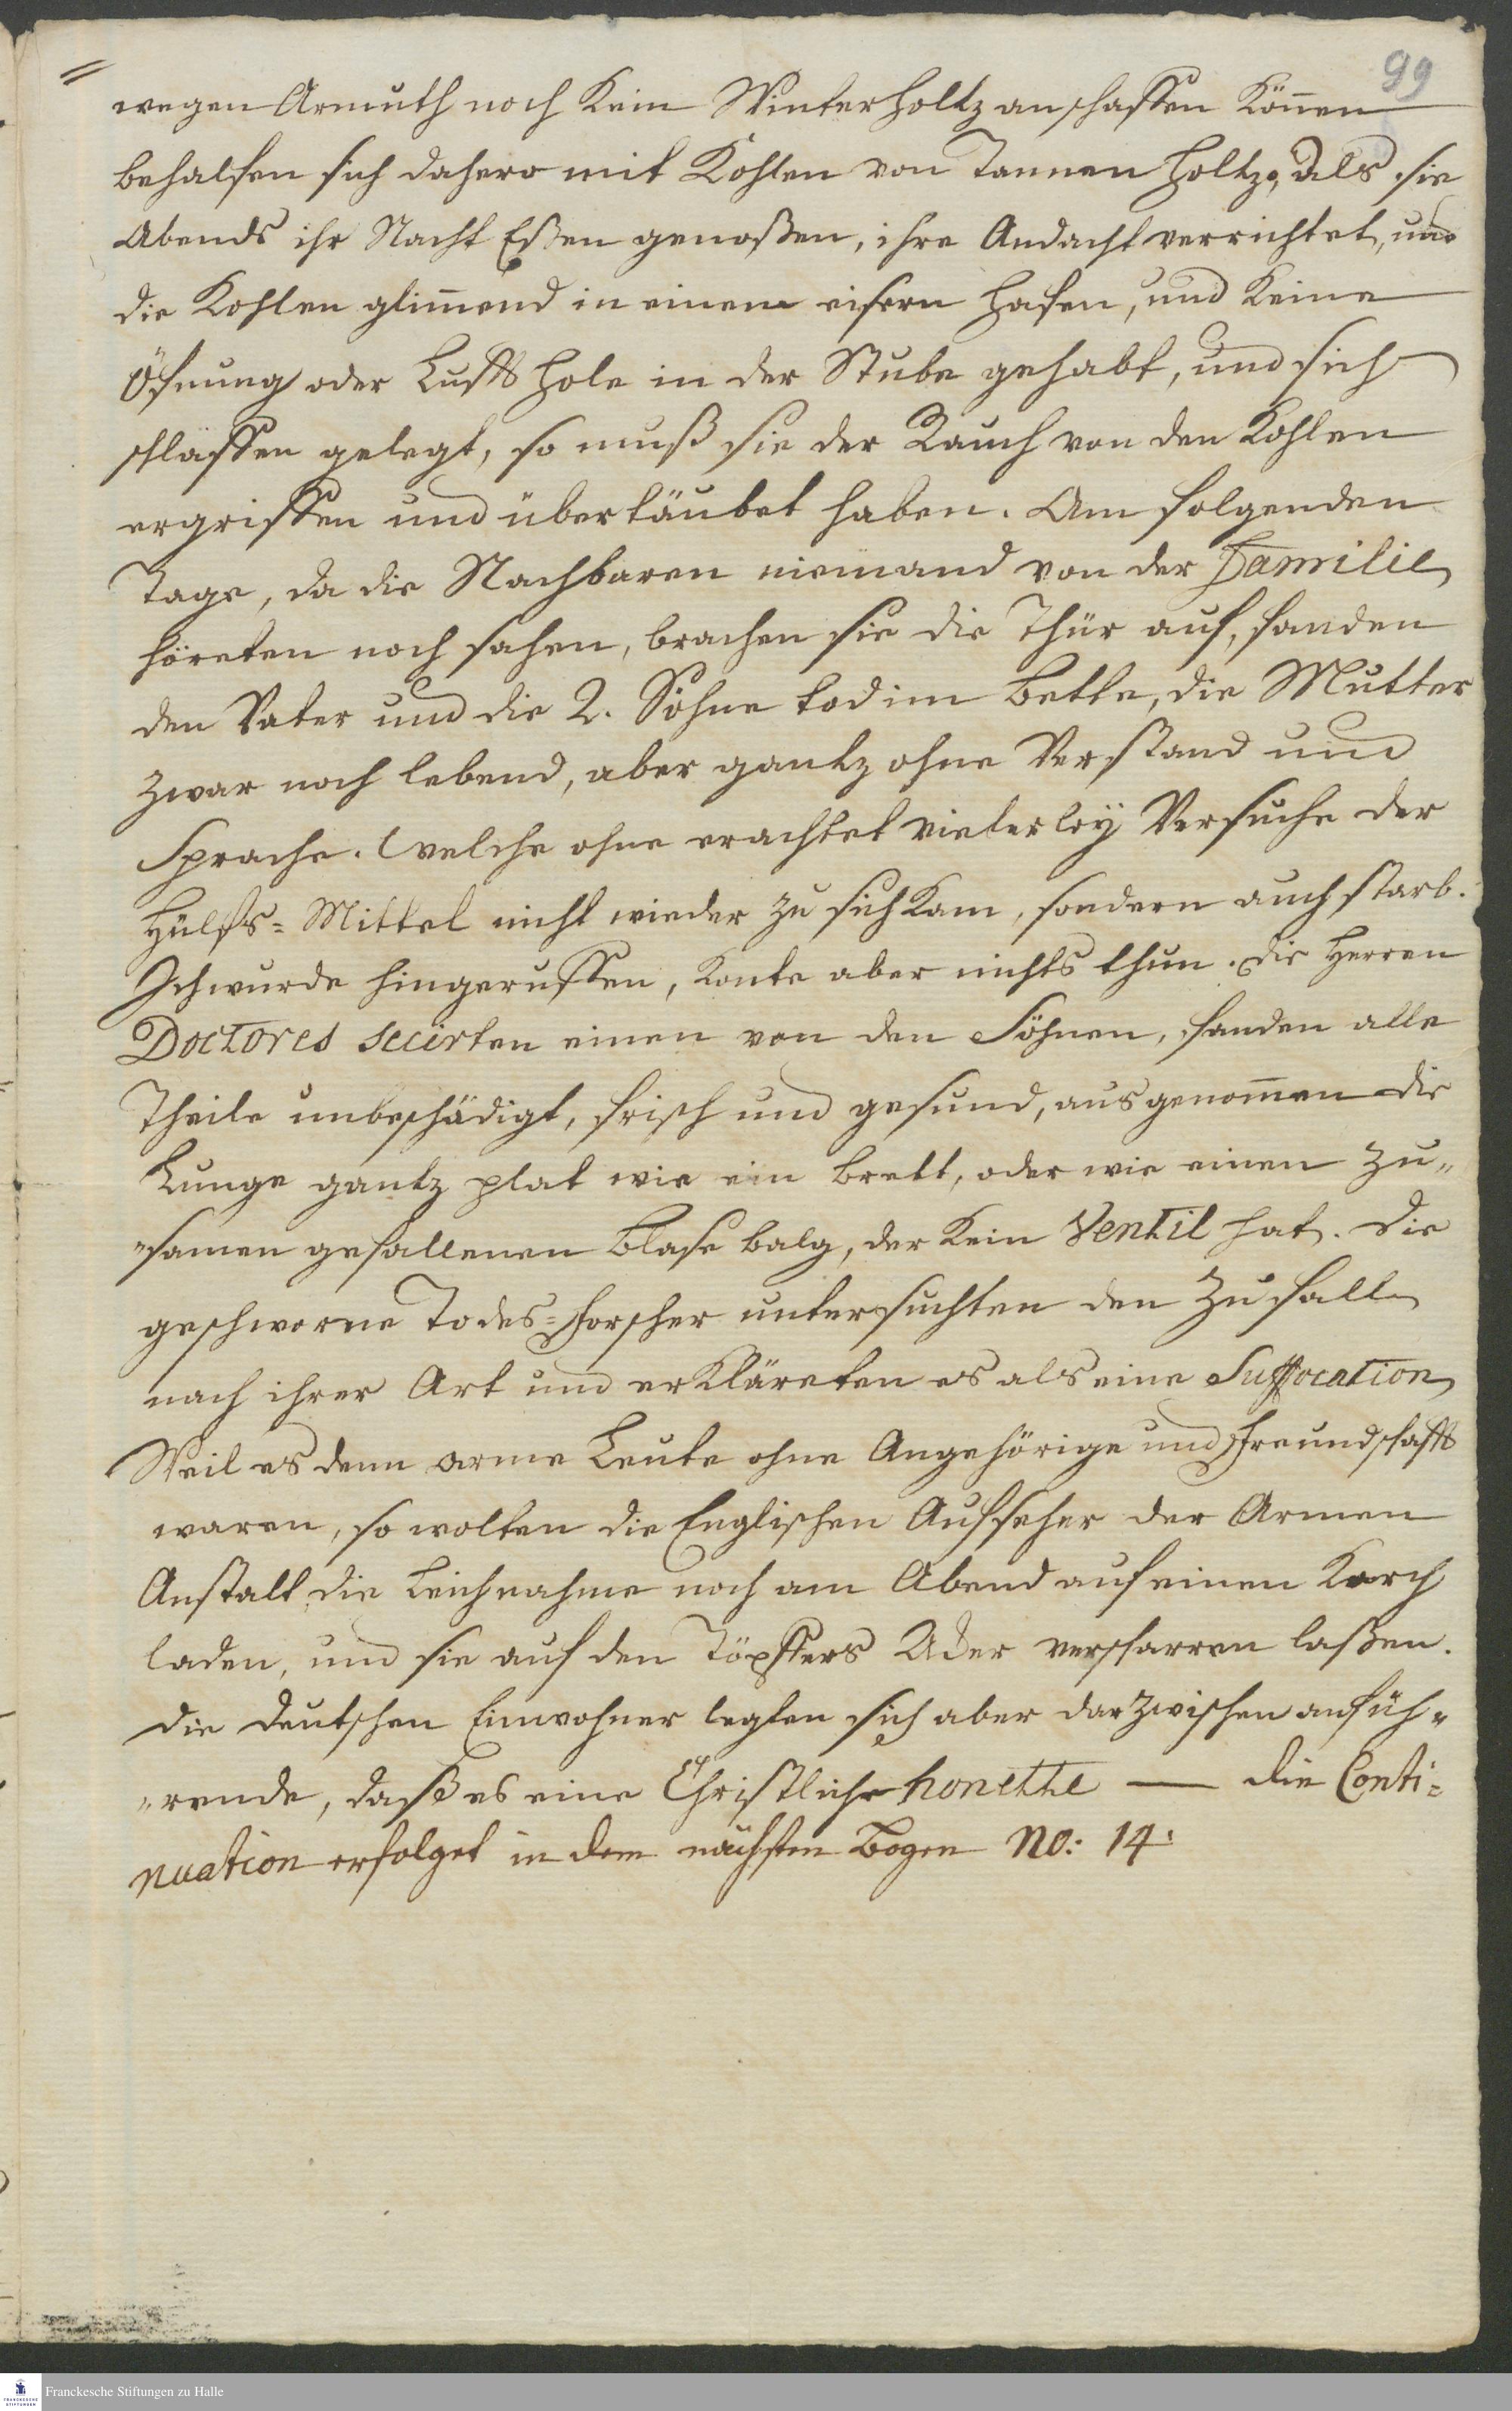 99
wegen Armuth noch kein Winterholtz anschaffen können
behalfen sich dahero mit Kohlen von Tannen Holtz, Als sie
Abends ihr Nacht Eßen genoßen, ihre Andacht verrichtet, und
die Kohlen glim̄end in einem eisern Hafen, und keine
Öfnung oder Luffthole in der Stube gehabt, und sich
schlaffen gelegt, so muß sie der Rauch von den Kohlen
ergriffen und übertäubet haben. Am folgenden
Tage, da die Nachbaren niemand von der Familie
höreten noch sahen, brachen sie die Thür auf, fanden
den Vater und die 2. Söhne tod im Bette, die Mutter
zwar noch lebend, aber gantz ohne Verstand und
Sprache. Welche ohne erachtet vielerley Versuche der
Hülfs=Mittel nicht wieder zu sich kam, sondern auch starb.
Ich wurde hingeruffen, konte aber nichts thun. Die Herren
Doctores secirten einen von den Söhnen, fanden alle
Theile unbeschädigt, frisch und gesund, ausgenom̄en die
Lunge gantz plat wie ein Brett, oder wie einen zu„
„samen gefallenen Blase balg, der kein Ventil hat. Die
geschworne Todes=Forscher untersuchten den Zufall
nach ihrer Art und erkläreten es als eine Suffocation
Weil es denn arme Leute ohne Angehörige und Freundschafft
waren, so wolten die Englischen Aufseher der Armen
Anstalt die Leichnahme noch am Abend auf einen Karch
laden, und sie auf den Töpffers Aker verscharren laßen.
Die deutschen Einwohner legten sich aber darzwischen anfüh„
„rende, daß es eine Christliche honette — die Conti=
nuation erfolget in dem nächsten Bogen No: 14:
Franckesche Stiftungen zu Halle